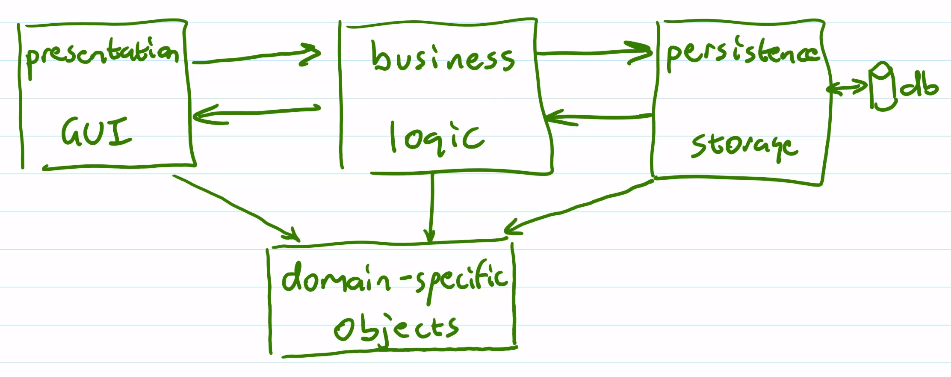 presentation
GUI
business
logic
persistence
storage
db
domain-specific
objects